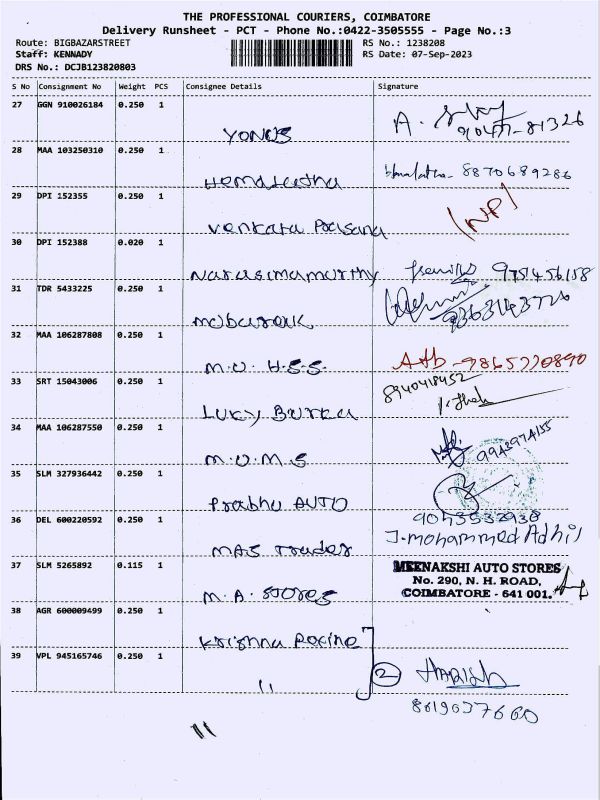 THE PROFESSIONAL COURIERS, COIMBATORE
Delivery Runsheet - PCT - Phone No.:0422-3505555 - Page No.:3
Route: BIGBAZARSTREET RS No.: 1238208
Staff: KENNADY RS Date: 07-Sep-2023
DRS No.: DCJB123820803
S No Consignment No Weight PCS Consignee Details Signature
27 GGN 910026184 0.250 1
YONUS
28 MAA 103250310 0.250 1
Hemalatha 8870689286
29 DPI 152355 0.250 1
Venkata Prasana
30 DPI 152388 0.020 1
Narasimamurthy 9751456158
31 TDR 5433225 0.250 1
mobarak
32 MAA 106287808 0.250 1
M.U. H.S.S. 9865770890
33 SRT 15043006 0.250 1
8940418452
Lucky Burka
34 MAA 106287550 0.250 1
M.U.M.S 9943974155
35 SLM 327936442 0.250 1
Prabhu AUTO
36 DEL 600220592 0.250 1
J. mohammed Adhil
MAS Trader
37 SLM 5265892 0.115 1 MEENAKSHI AUTO STORES
No. 290, N. H. ROAD,
M.A. Stores COIMBATORE - 641 001.
38 AGR 600009499 0.250 1
Krishna
39 VPL 945165746 0.250 1
" 2 HARISH
8619037660